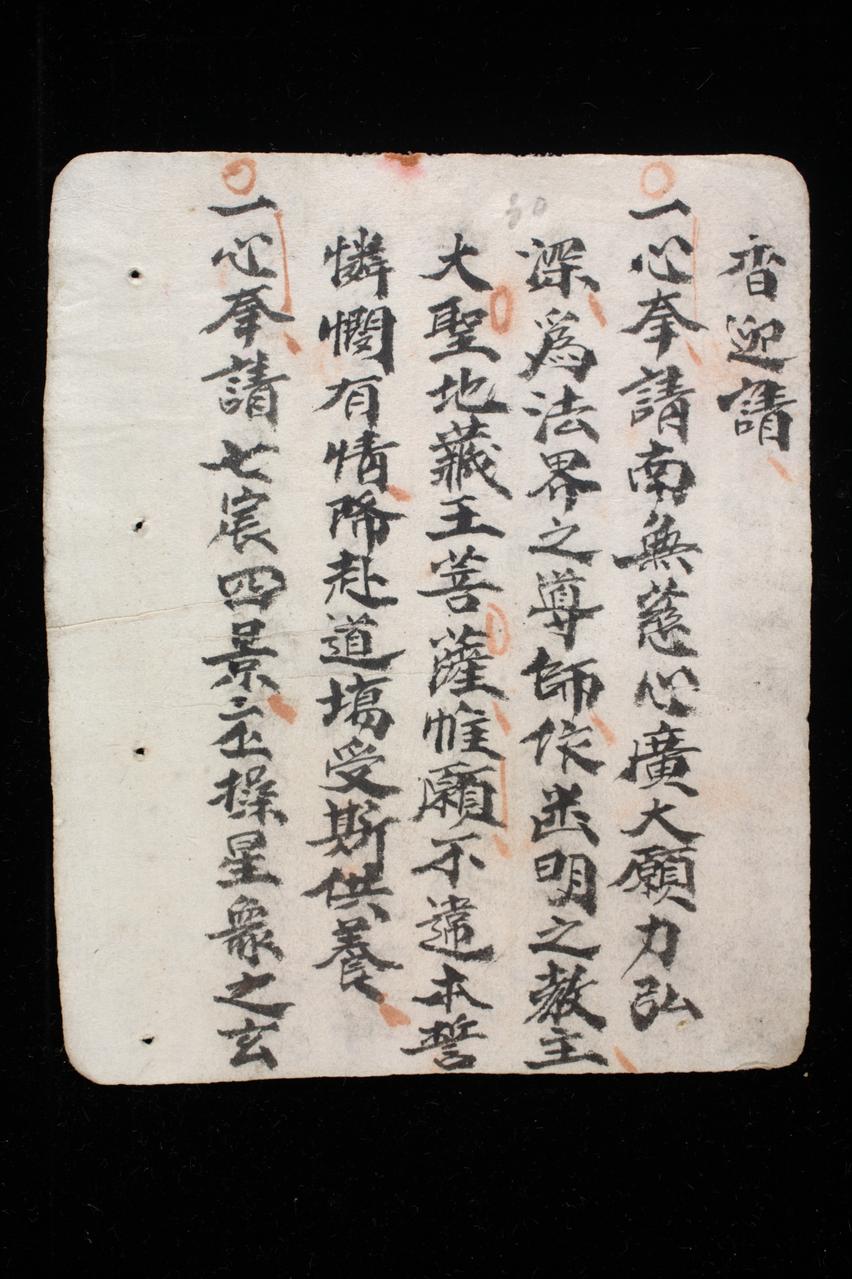 香迎請
一心奉請南無慈心廣大願力弘
深為法界之導師作幽明之教主
大聖地藏王菩薩惟願不違本誓
憐憫有情降赴道場受斯供養
一心奉請七宸四景二五操星衆之玄
30